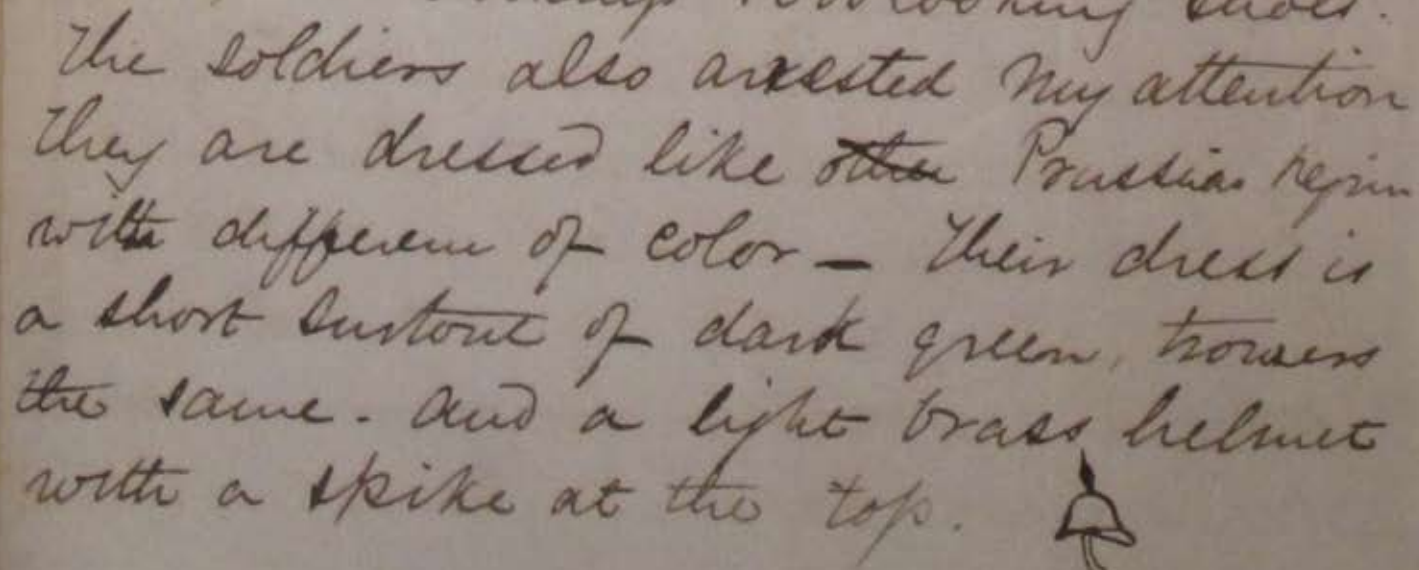 looking shoes.
The soldiers also arrested my attention
They are dressed like other Prussian
with differene of color – Their dress is
a short surtout of dark green, trowsers
the same. and a light brass helmet
with a spike at the top.